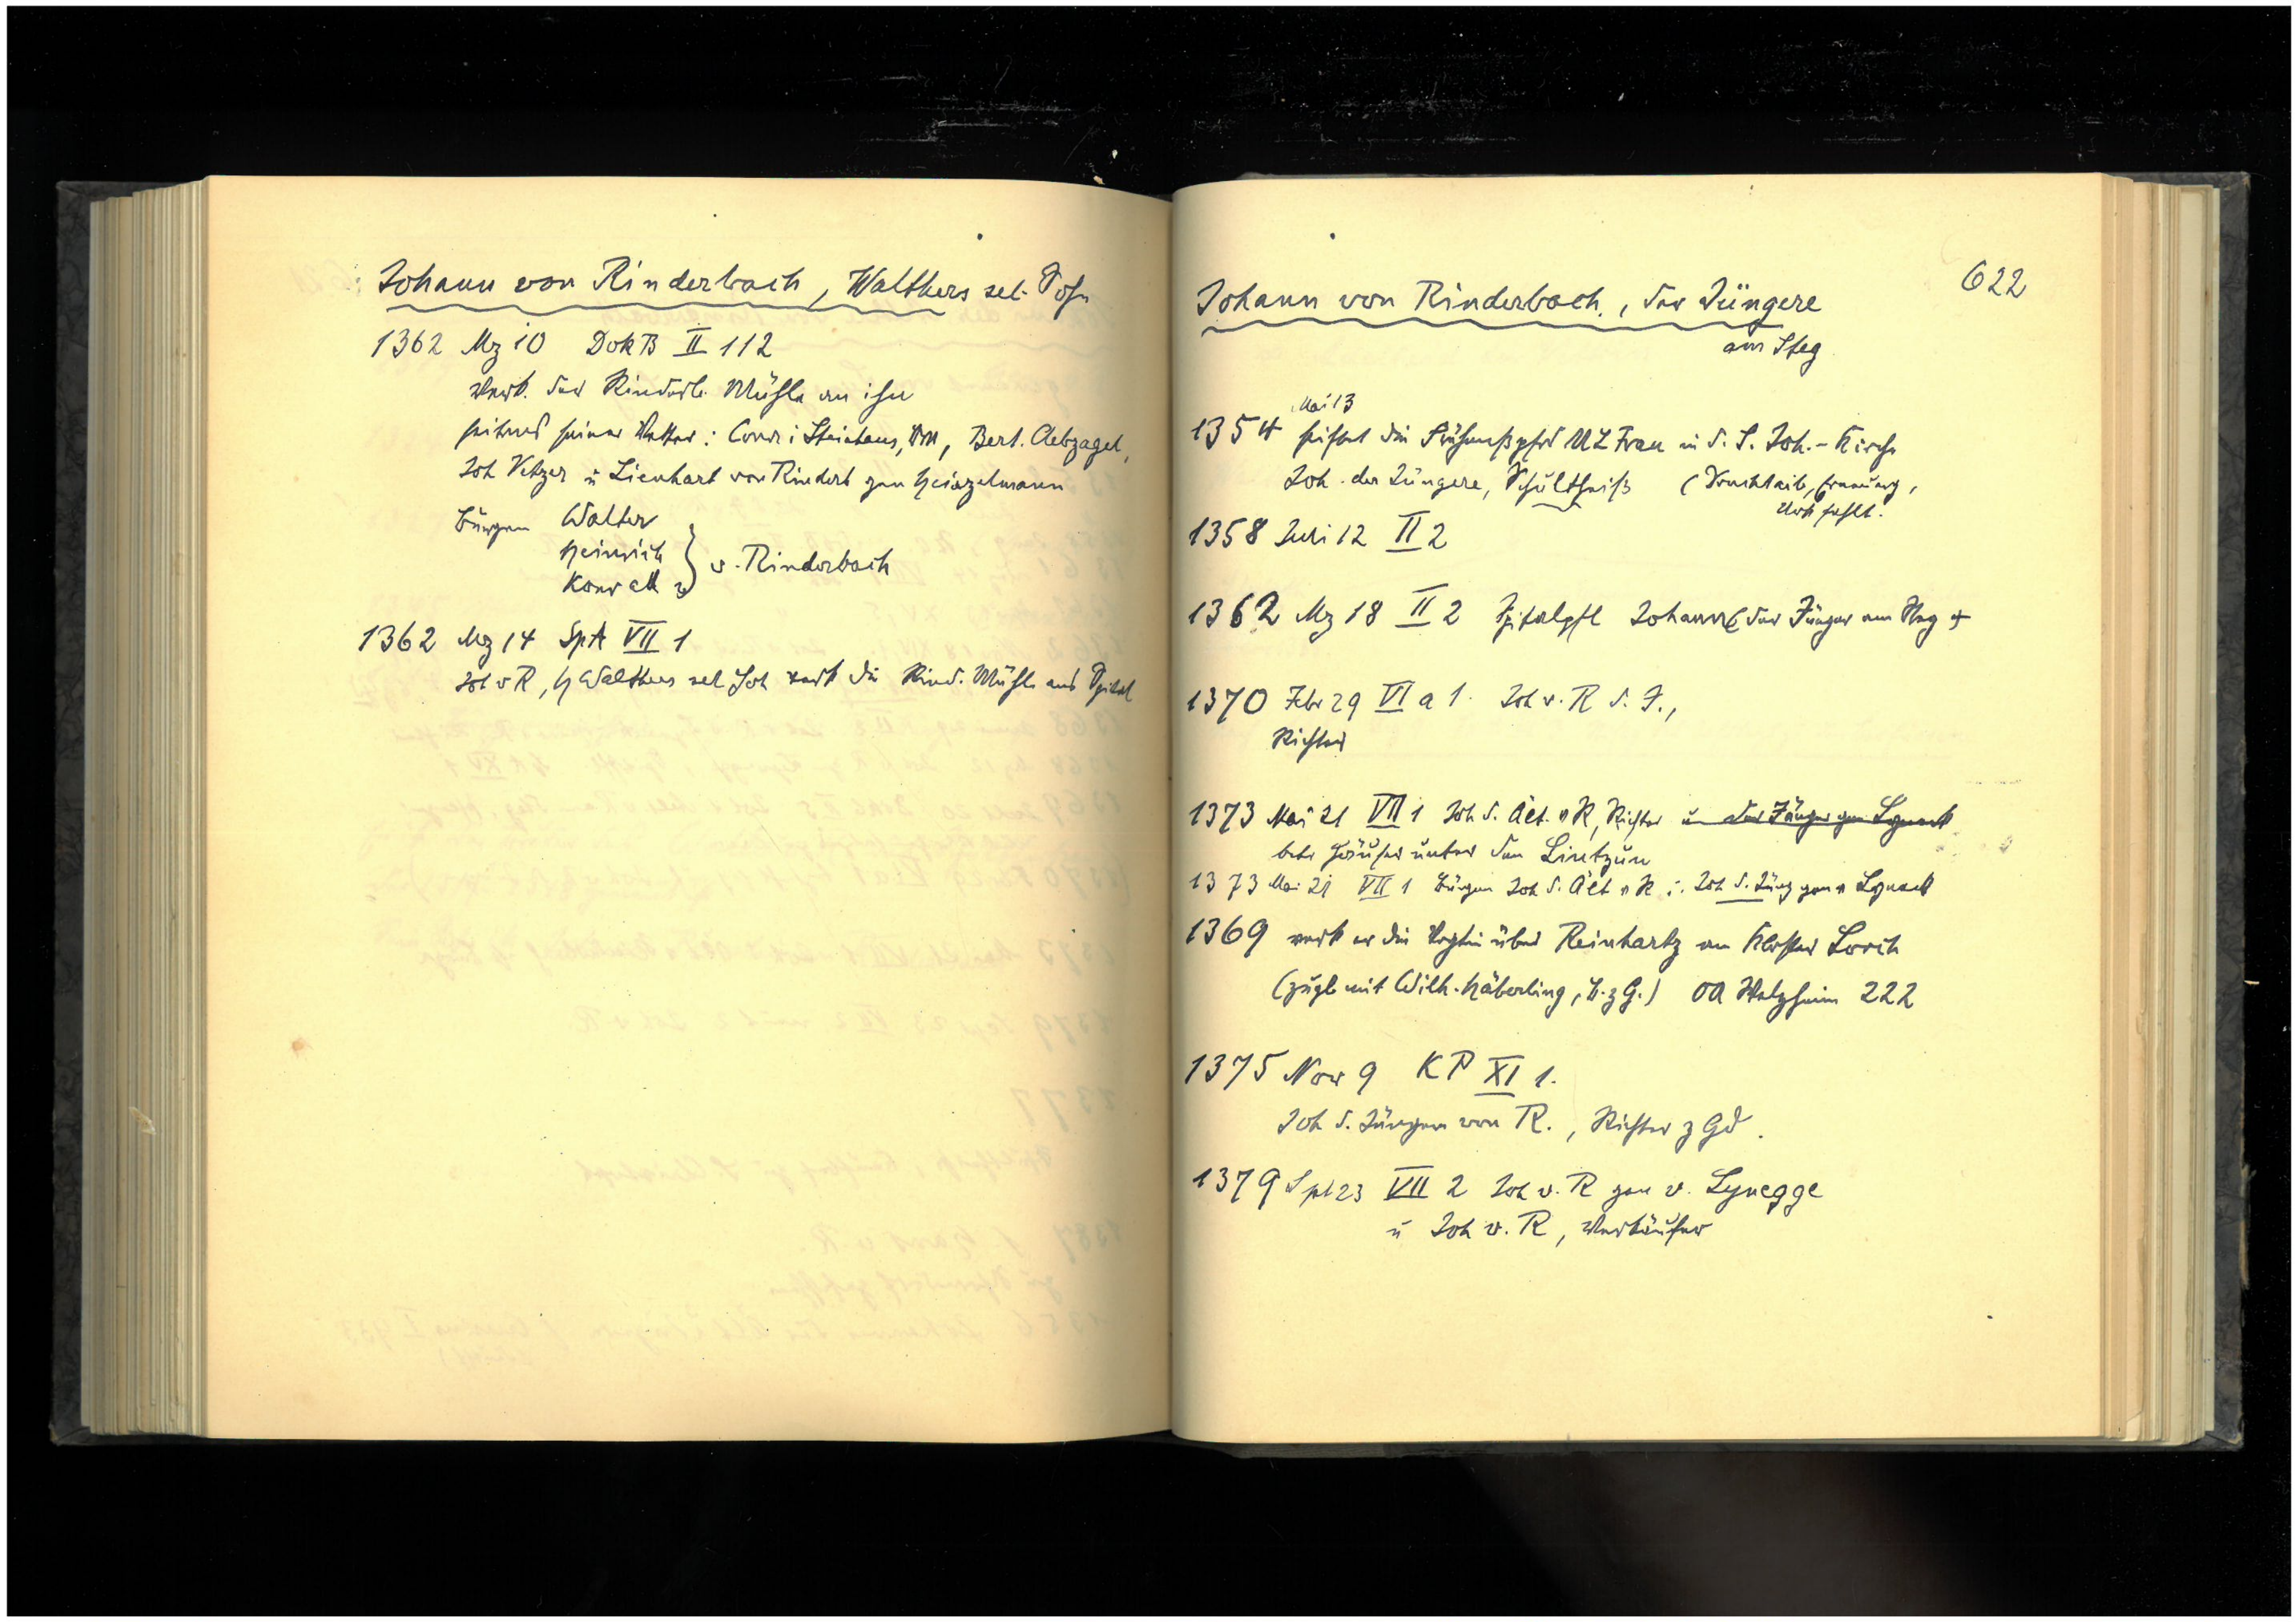 Johann von Rinderbach, Walthers sel. Sohn
1362 Mz 10 DokB II 112
Verk. der Rinderb. Mühle an ihn
seitens seiner Vetter: Conr i Steinhaus, Bert. Clebzagel,
Joh Vetzer u Lienhart von Rinderb gen Heinzelmann
Bürgen Walter
Heinrich
Konrad } v. Rinderbach
1362 Mz 14 SpA VII 1
Joh v R, H Walthers sel Soh verk die Rind. Mühle ans Spital
622
Johann von Rinderbach, der Jüngere
am Steg
Mai 13
1354 stiftet die Frühmeßpfrd ULFrau in d. S. Joh.-Kirche
Joh. der Jüngere, Schultheiß
Urk fehlt.
1358 Juli 12 II 2
1362 Mz 18 II 2 Spitalpfl Johann der Jünger am Steg
1370 Febr 29 VI a 1. Joh v. R d. J.,
Richter
1373 Mai 21 VII 1 Joh d. Ält. v R, Richter u der Jünger gen Lyneck
betr Häuser unter den Lintzun
1373 Mai 21 VII 1 Bürgen Joh d. Ält v R u. Joh d. Jüng gen v Lyneck
1369 verk er die Vogtei über Reinhartz an Kloster Lorch
(zugl mit Wilh. Häberling, B. z G.) OA Welzheim 222
1375 Nov 9 KP XI 1.
Joh d. Jüngere von R., Richter z Gd.
1379 Spt 23 VII 2 Joh v. R gen v. Lynegge
u Joh v. R, Verkäufer